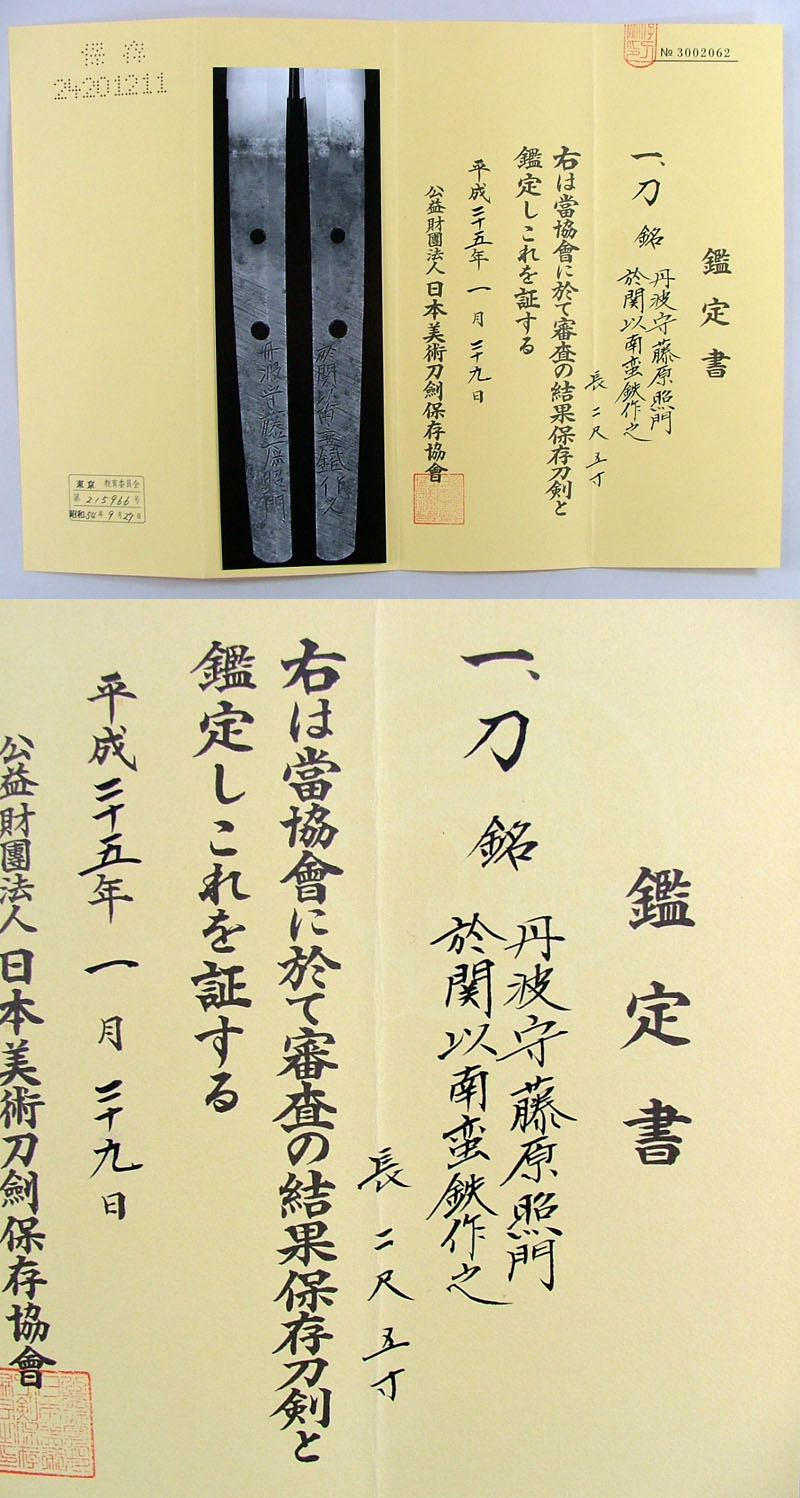 № 3002062
鑑定書
一、刀 銘 丹波守藤原照門
於関以南蛮鉄作之
長二尺五寸
右は當協會に於て審査の結果保存刀剣と
鑑定しこれを証する
平成二十五年一月二十九日
公益財團法人日本美術刀劍保存協會
於関以南蛮鐵作之
丹波守藤原照門
保存
24201211
東京 教育委員会
第 215966 号
昭和54年9月27日
鑑定書
一、刀 銘 丹波守藤原照門
於関以南蛮鉄作之
長二尺五寸
右は當協會に於て審査の結果保存刀剣と
鑑定しこれを証する
平成二十五年一月二十九日
公益財團法人日本美術刀劍保存協會